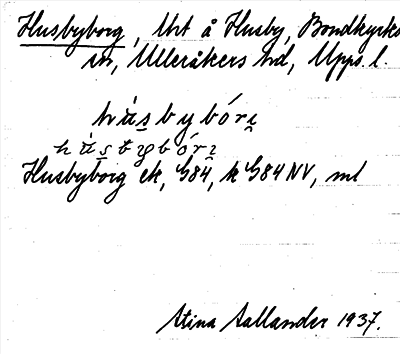 Husbyborg, Urt å Husby, Bondkyrko
sn, Ulleråkers hd, Upps. l.
hùsbybóri̯
Husbyborg ek, G84, k G84 NV, ml
Stina Sallander 1937.